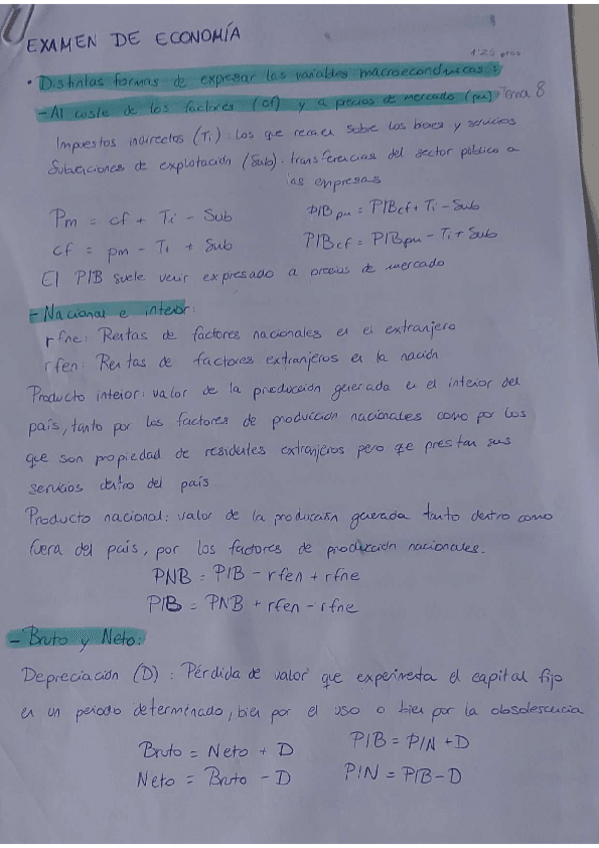 EXAMEN DE ECONOMÍA
1'25 ptos
· Distintas formas de expresar las variables macroeconómicas:
- Al coste de los factores (cf) y a precios de mercado (pm) Tema 8
Impuestos indirectos (Ti): los que recaen sobre los bienes y servicios
Subvenciones de explotación (Sub): transferencias del sector público a
las empresas
Pm = cf + Ti - Sub
PIBpm = PIBcf + Ti - Sub
cf = pm - Ti + Sub
PIBcf = PIBpm - Ti + Sub
El PIB suele venir expresado a precios de mercado
- Nacional e interior:
rfne: Rentas de factores nacionales en el extranjero
rfen: Rentas de factores extranjeros en la nación
Producto interior: valor de la producción generada en el interior del
país, tanto por los factores de producción nacionales como por los
que son propiedad de residentes extranjeros pero qe prestan sus
servicios dentro del país
Producto nacional: valor de la producción generada tanto dentro como
fuera del país, por los factores de producción nacionales.
PNB = PIB - rfen + rfne
PIB = PNB + rfen - rfne
- Bruto y Neto:
Depreciación (D): Pérdida de valor que experimenta el capital fijo
en un periodo determinado, bien por el uso o bien por la obsolescencia
Bruto = Neto + D
PIB = PIN + D
Neto = Bruto - D
PIN = PIB - D